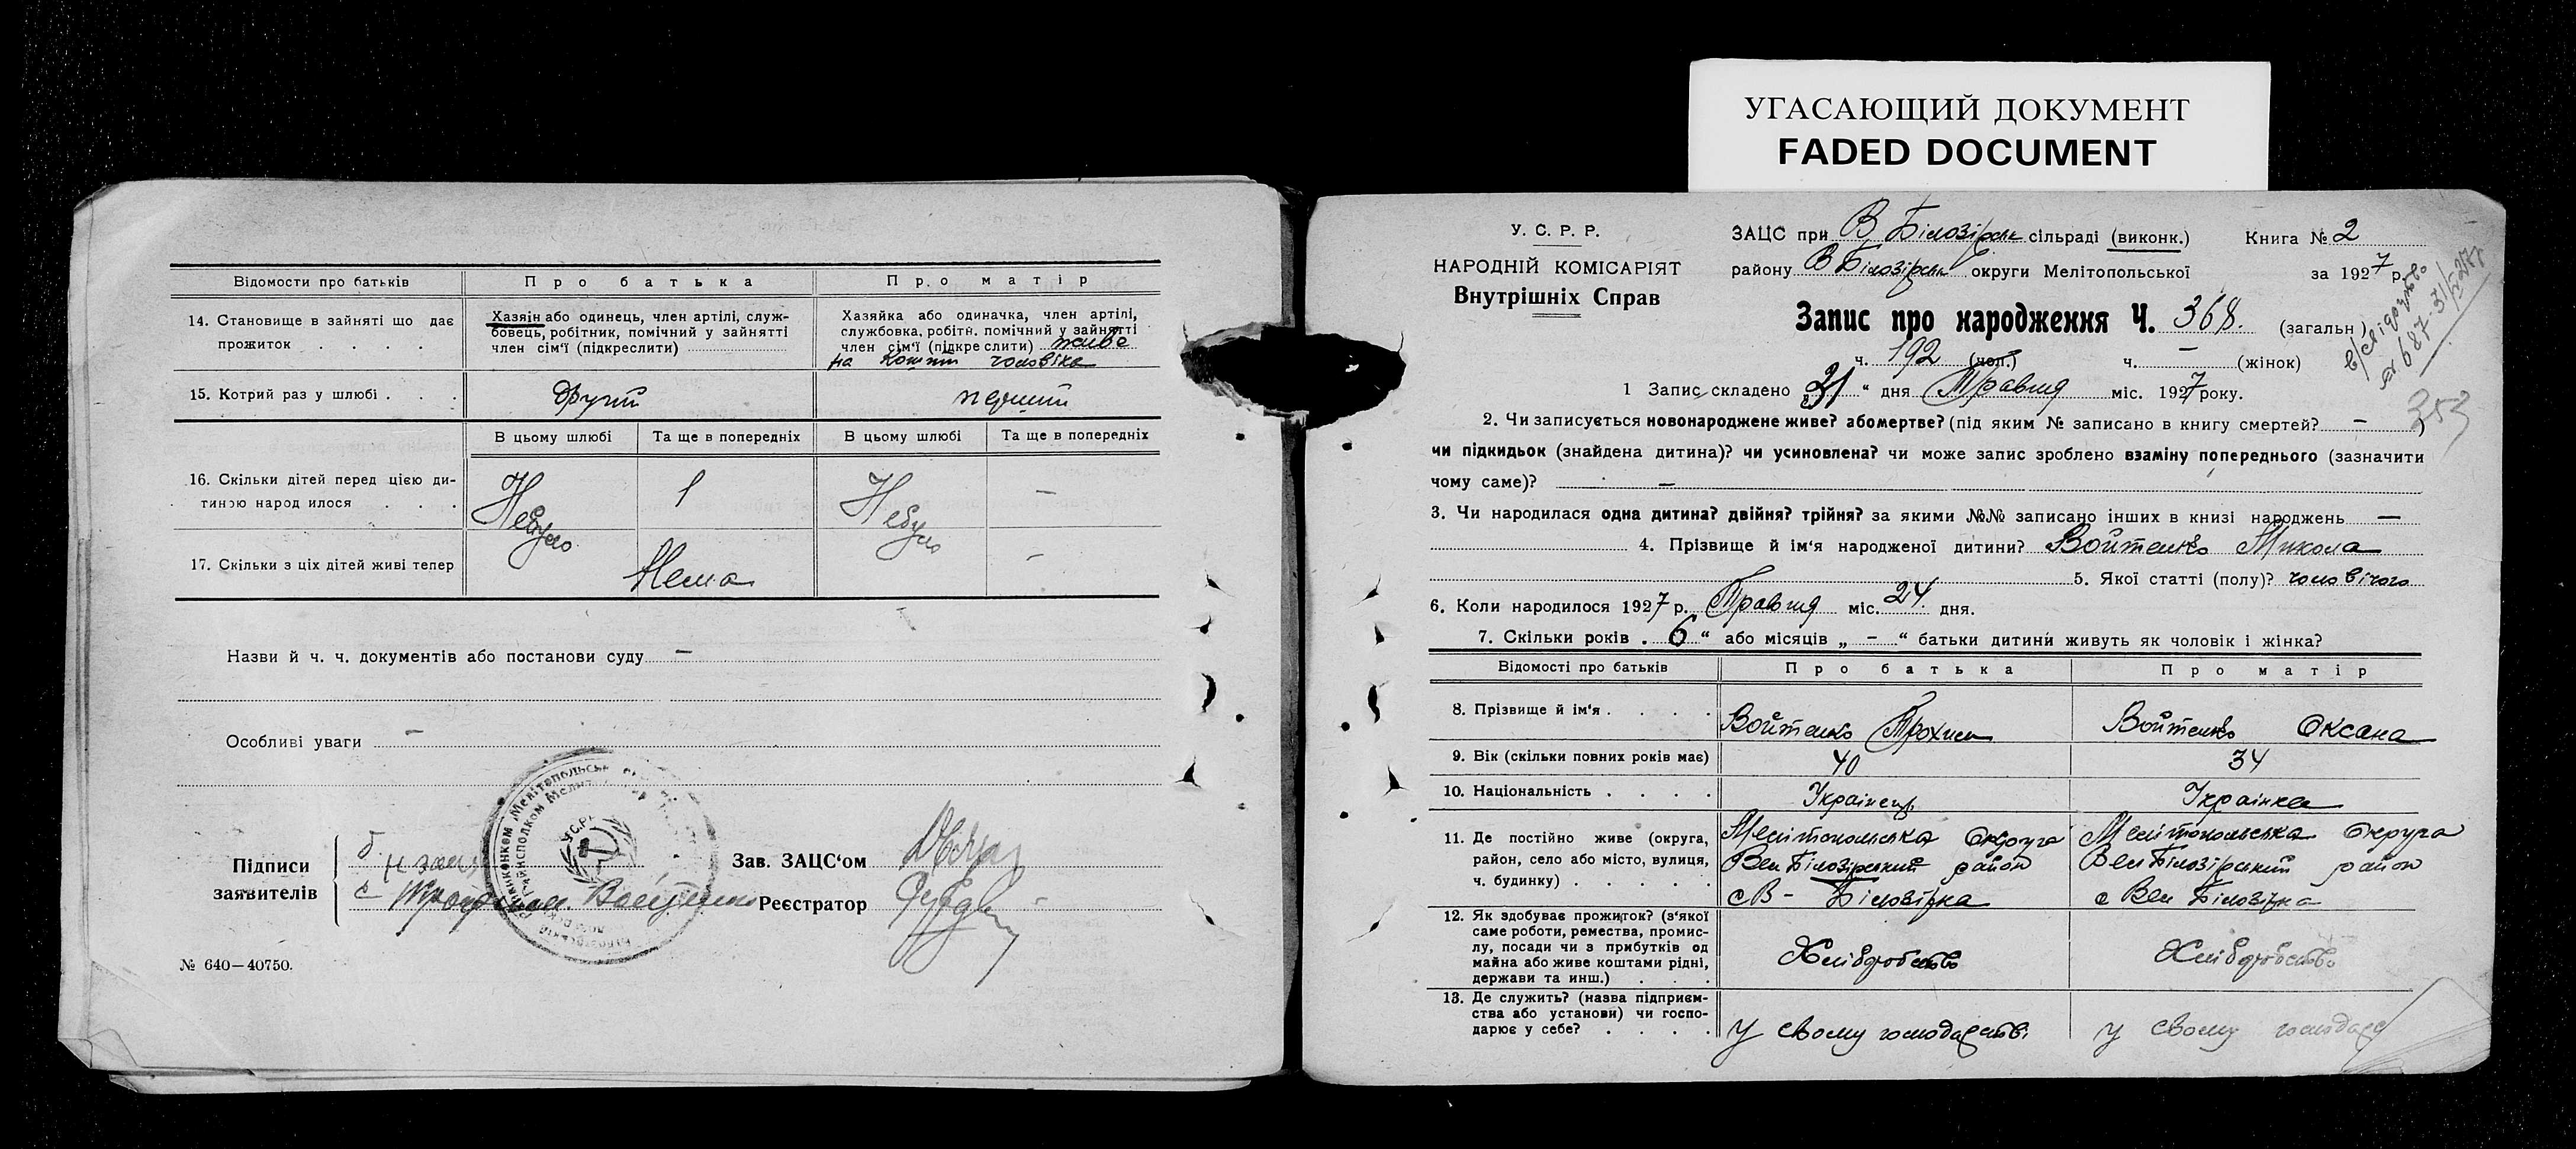 УГАСАЮЩИЙ ДОКУМЕНТ
FADED DOCUMENT
Відомости про батьків
Про батька
Про матір
14. Становище в зайняті що дає прожиток . . . .
Хазяїн або одинець, член артілі, служ-
бовець, робітник, помічний у зайнятті
член сім'ї (підкреслити)
Хазяйка або одиначка, член артілі,
службовка, робітн. помічний у зайнятті
член сім'ї (підкреслити) живе
на кошти чоловіка
15. Котрий раз у шлюбі . . .
другий
перший
В цьому шлюбі
Та ще в попередніх
В цьому шлюбі
Та ще в попередніх
16. Скільки дітей перед цією ди-
тиною народилося . . .
Небуло
1
Небуло
—
17. Скільки з ціх дітей живі тепер
Нема
—
Назви й ч. ч. документів або постанови суду —
Особливі уваги —
Підписи
заявителів
Зав. ЗАЦС'ом
Реєстратор
№ 640—40750.
У. С. Р. Р.
НАРОДНІЙ КОМІСАРІЯТ
Внутрішніх Справ
ЗАЦС при В Білозірськ сільраді (виконк.)
Книга № 2
району В Білозірськ округи Мелітопольської
за 1927 р.
Запис про народження Ч. 368. (загальн.)
ч. 192 (чол.) ч. — (жінок)
353
1 Запис складено „31“ дня Травня міс. 1927 року.
2. Чи записується новонароджене живе? або мертве? (під яким № записано в книгу смертей? — )
чи підкидьок (знайдена дитина)? чи усиновлена? чи може запис зроблено взаміну попереднього (зазначити
чому саме)? —
3. Чи народилася одна дитина? двійня? трійня? за якими №№ записано інших в книзі народжень —
4. Прізвище й ім'я народженої дитини? Войтенко Микола
5. Якої статті (полу)? чоловічого
6. Коли народилося 1927 р. Травня міс. 24. дня.
7. Скільки років „6“ або місяців „ – “ батьки дитини живуть як чоловік і жінка?
Відомості про батьків
Про батька
Про матір
8. Прізвище й ім'я . . . .
Войтенко Трохим
Войтенко Оксана
9. Вік (скільки повних років має)
40
34
10. Національність . . . .
Українець
Українка
11. Де постійно живе (округа,
район, село або місто, вулиця,
ч. будинку) . . . . .
Мелітопольська Округа
Вел Білозірський район
с В- Білозірка
Мелітопольська Округа
Вел Білозірський район
с Вел Білозірка
12. Як здобуває прожиток? (з'якої
саме роботи, ремества, промис-
лу, посади чи з прибутків од
майна або живе коштами рідні,
держави та инш.) . . .
Хліборобство
Хліборобство
13. Де служить? (назва підприєм-
ства або установи) чи госпо-
дарює у себе? . . . .
у свому господарстві
у свому господарс